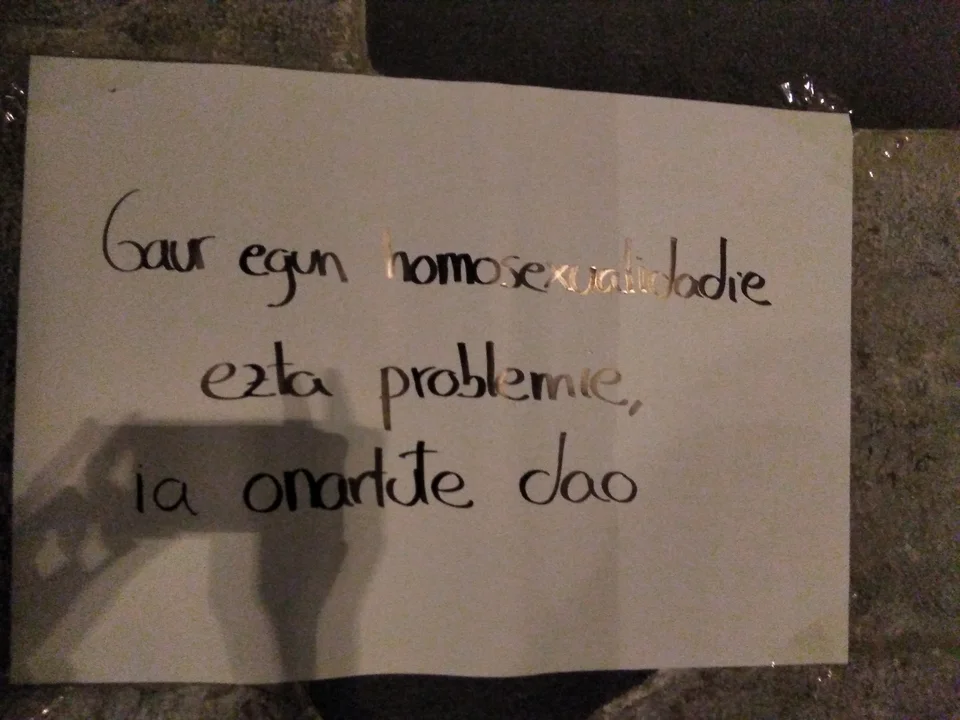 Gaur egun homosexualidadie
ezta problemie,
ia onartute dao